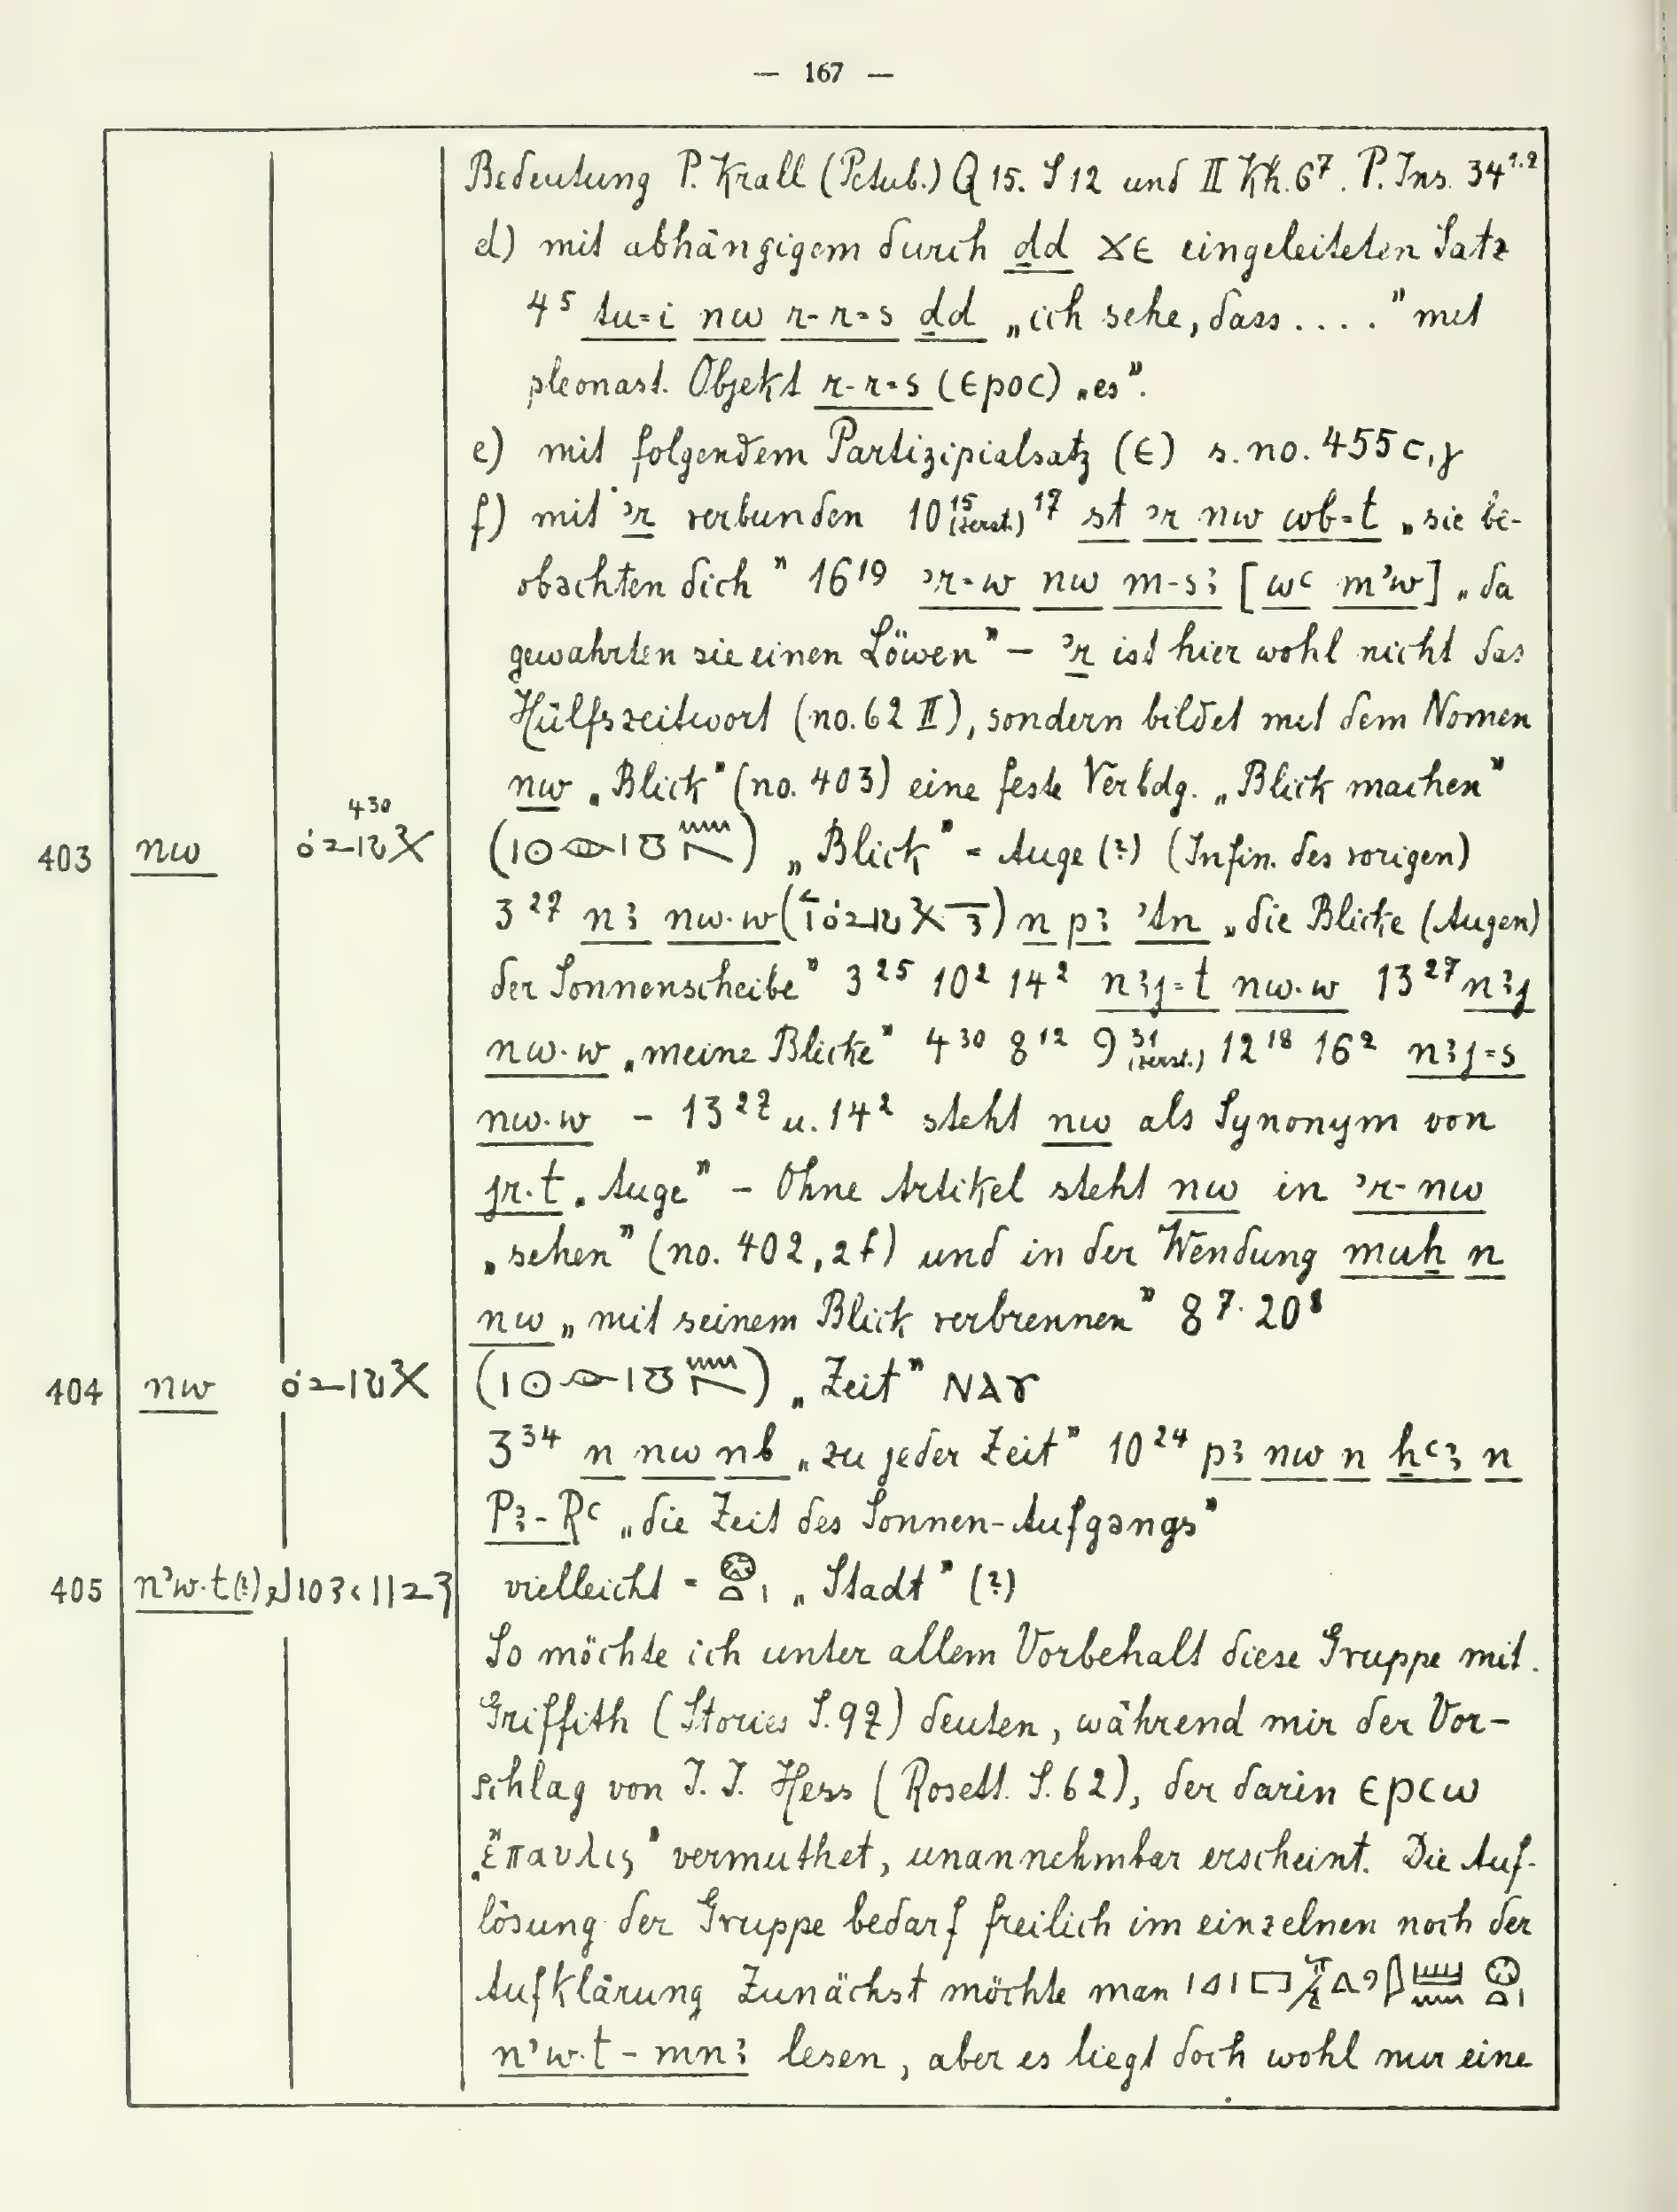 — 167 —
Bedeutung P. Krall (Petub.) Q 15. S 12 und II Kh. 6⁷. P. Ins. 34¹·²
d) mit abhängigem durch ḏd ϫⲉ eingeleiteten Satz
4⁵ tu=i nw r-r=s ḏd „ich sehe, dass . . . . ” mit
pleonast. Objekt r-r=s (ⲉⲣⲟⲥ) „es”.
e) mit folgendem Partizipialsatz (ⲉ) s. no. 455 c,γ
f) mit ʾr verbunden 10¹⁵ (zerst.) ¹⁷ st ʾr nw wb=t „sie be-
obachten dich” 16¹⁹ ʾr=w nw m-sꜣ [wꜥ mʾw] „da
gewahrten sie einen Löwen” – ʾr ist hier wohl nicht das
Hülfszeitwort (no. 62 II), sondern bildet mit dem Nomen
nw „Blick” (no. 403) eine feste Verbdg. „Blick machen”
403 nw 430 „Blick” = Auge (?) (Infin. des vorigen)
3²⁷ nꜣ nw·w n pꜣ ʾtn „die Blicke (Augen)
der Sonnenscheibe” 3²⁵ 10² 14² nꜣj=t nw·w 13²⁷ nꜣj
nw·w „meine Blicke” 4³⁰ 8¹² 9³¹ (zerst.) 12¹⁸ 16² nꜣj=s
nw·w – 13²⁷ u. 14² steht nw als Synonym von
jr·t „Auge” – Ohne Artikel steht nw in ʾr-nw
„sehen” (no. 402, 2f) und in der Wendung muẖ n
nw „mit seinem Blick verbrennen” 8⁷· 20⁸
404 nw „Zeit” ⲛⲁⲩ
3³⁴ n nw nb „zu jeder Zeit” 10²⁴ pꜣ nw n ẖꜥꜣ n
Pꜣ-Rꜥ „die Zeit des Sonnen-Aufgangs”
405 nʾw·t(?) vielleicht = „Stadt” (?)
So möchte ich unter allem Vorbehalt diese Gruppe mit
Griffith (Stories S. 97) deuten, während mir der Vor-
schlag von J. J. Hess (Rosett. S. 62), der darin ⲉⲣⲥⲱ
„ἔπαυλις” vermuthet, unannehmbar erscheint. Die Auf-
lösung der Gruppe bedarf freilich im einzelnen noch der
Aufklärung Zunächst möchte man
nʾw·t - mnꜣ lesen, aber es liegt doch wohl nur eine